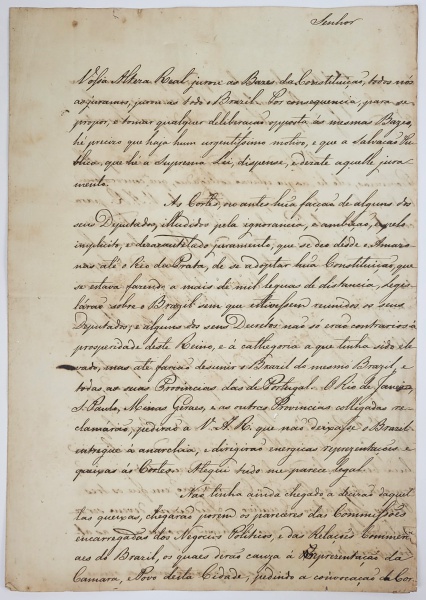 Senhor
Vossa Alteza Real jurou as Bazes da Constituição, todos nós
as juramos, jurou-as todo o Brazil. Por consequencia, para se
propor, e tomar qualquer deliberação opposta ás mesmas Bazes,
hé precizo que haja hum urgentissimo motivo, e que a Salvação Pu
blica, que hé a Suprema Lei, dispense, e derate aquelle jura
mento.
As Cortes, ou antes huã facção de alguns dos
seus Deputados, illudidos pela ignorancia, e ambição, e pelo
implicito, e desacautelado juramento, que se deo desde o Amazo
nas até o Rio da Prata, de se adoptar huã Constituição, que
se estava fazendo a mais de mil legoas de distancia, legis
lárão sobre o Brazil sem que estivessem reunidos os seus
Deputados, e alguns dos seus Decretos não só erão contrarios á
prosperidade deste Reino, e á cathegoria a que tinha sido ele
vado, mas até fazião desunir o Brazil do mesmo Brazil, e
todas as suas Provincias das de Portugal. O Rio de Janeiro,
S. Paulo, Minas Geraes, e as outras Provincias colligadas re
clamárão, pedirão a V. A. R. que não deixasse o Brazil
entregue á anarchia, e dirigirão energicas reprezentações e
queixas ás Cortes. Athequi tudo me parece legal.
Não tinha ainda chegado a decizão daquel
las queixas, chegárão porem os pareceres das Commissões
encarregadas dos Negocios Politicos, e das Relações Commerci
aes do Brazil, os quaes derão cauza á Representação da
Camara, e Povo desta Cidade, pedindo a convocação de Cor